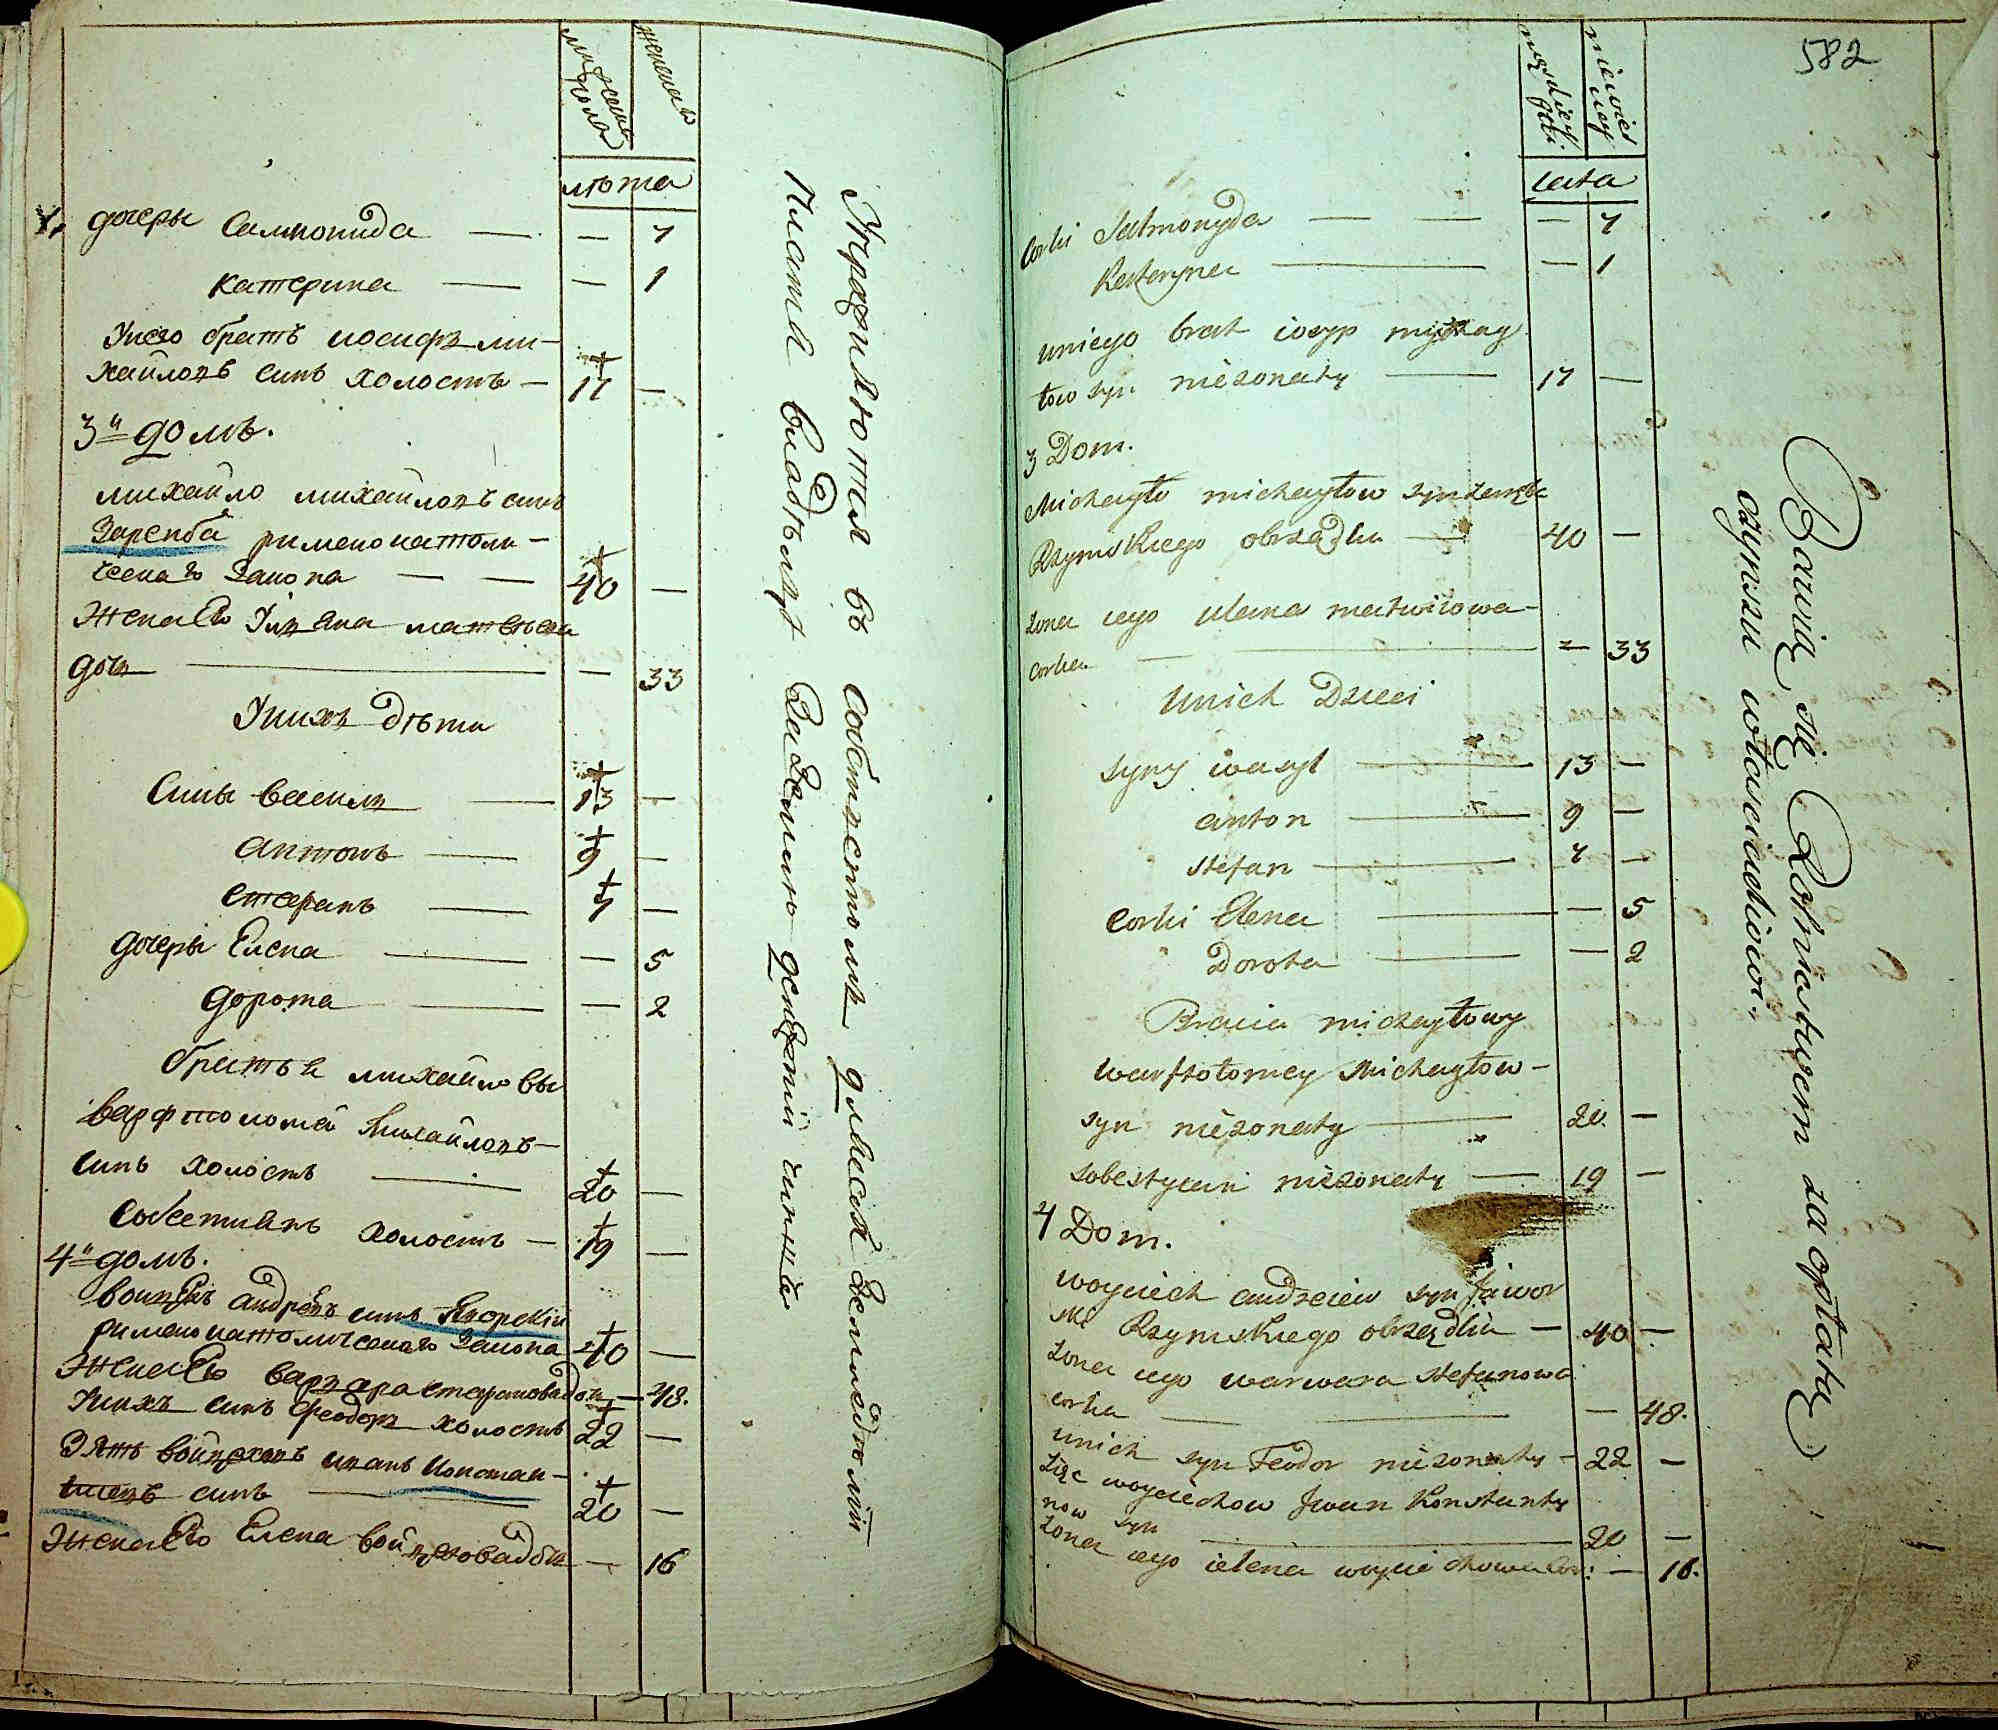 мужеска пола
женска
лѣта
дочеры Салмонида — — 7
Катерина — — 1
У него братъ иосифъ ми-
хайловъ синъ холостъ — 17 —
3й домъ.
михайло михайловъ синъ
Заремба римскокатоли-
ческаго Закона — — 40 —
Жена Его Ульяна матвѣева
дочь — — 33
У нихъ дѣти
Сины василь — 13 —
антонъ — 9 —
стефанъ — 7 —
дочеры Елена — — 5
дорота — — 2
братья михайловы
варфтоломѣй Михайловъ —
синъ холостъ — 20 —
Собестиянъ холостъ — 19 —
4й домъ.
войцѣхъ андрѣевъ синъ Яворскій
римскокатолическаго Закона 40 —
Жена Его варвара стефановадочь — 48.
У нихъ синъ Феодоръ холостъ 22 —
Зять войцеховъ иванъ Констан-
тиновъ синъ — 20 —
Жена Его Елена войцеховадочь — 16
Упражняются въ собственномъ домѣ земледѣліемъ
Платя владѣльцу за землю денежній чиншъ
582
męzkiey płci
niewiesciey
Lata
Corki Salmonyda — — — 7
Kateryna — — 1
uniego brat iosyp michay
łow syn nieżonaty — 17 —
3 Dom.
Michayło michayłow syn zaręba
Rzymskiego obrządku — 40 —
żona iego ulana matwiiowa -
corka — — 33
unich Dzieci
syny wasyl — 13 —
anton — 9 —
stefan — 7 —
Corki Elena — — 5
Dorota — — 2
Bracia michayłowy
warftołomey Michayłow -
syn nieżonaty — 20. —
sobestyan nieżonaty — 19 —
4 Dom.
woyciech andreiew syn jawor
ski Rzymskiego obrządku — 40 —
żona iego warwara stefanowa
corka — — 48.
unich syn Feodor nieżonaty — 22 —
Zięc woyciechow Jwan Konstanty
now syn — 20 —
żona iego ielena woyciechowa Cor: — 16.
Bawią się Rolnictwem za opłatą
czynszu włascicielowi.